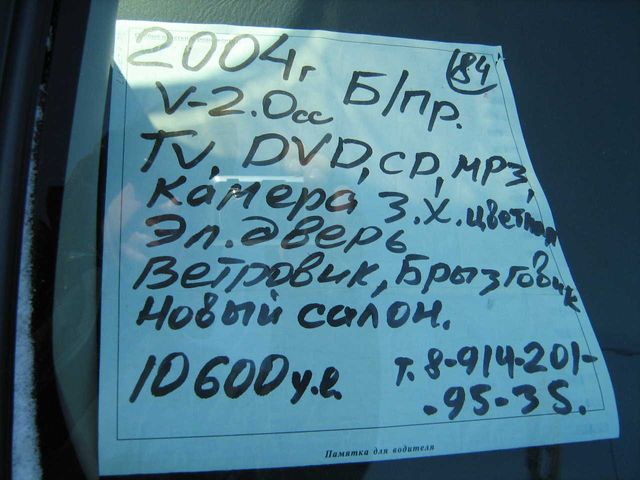 84
2004г
V-2.0сс Б/пр.
TV, DVD, CD, MP3,
Камера З.Х. цветная
Эл. дверь
Ветровик, Брызговик
Новый салон.
10600 у.е. т. 8-914-201-
-95-35.
Памятка для водителя